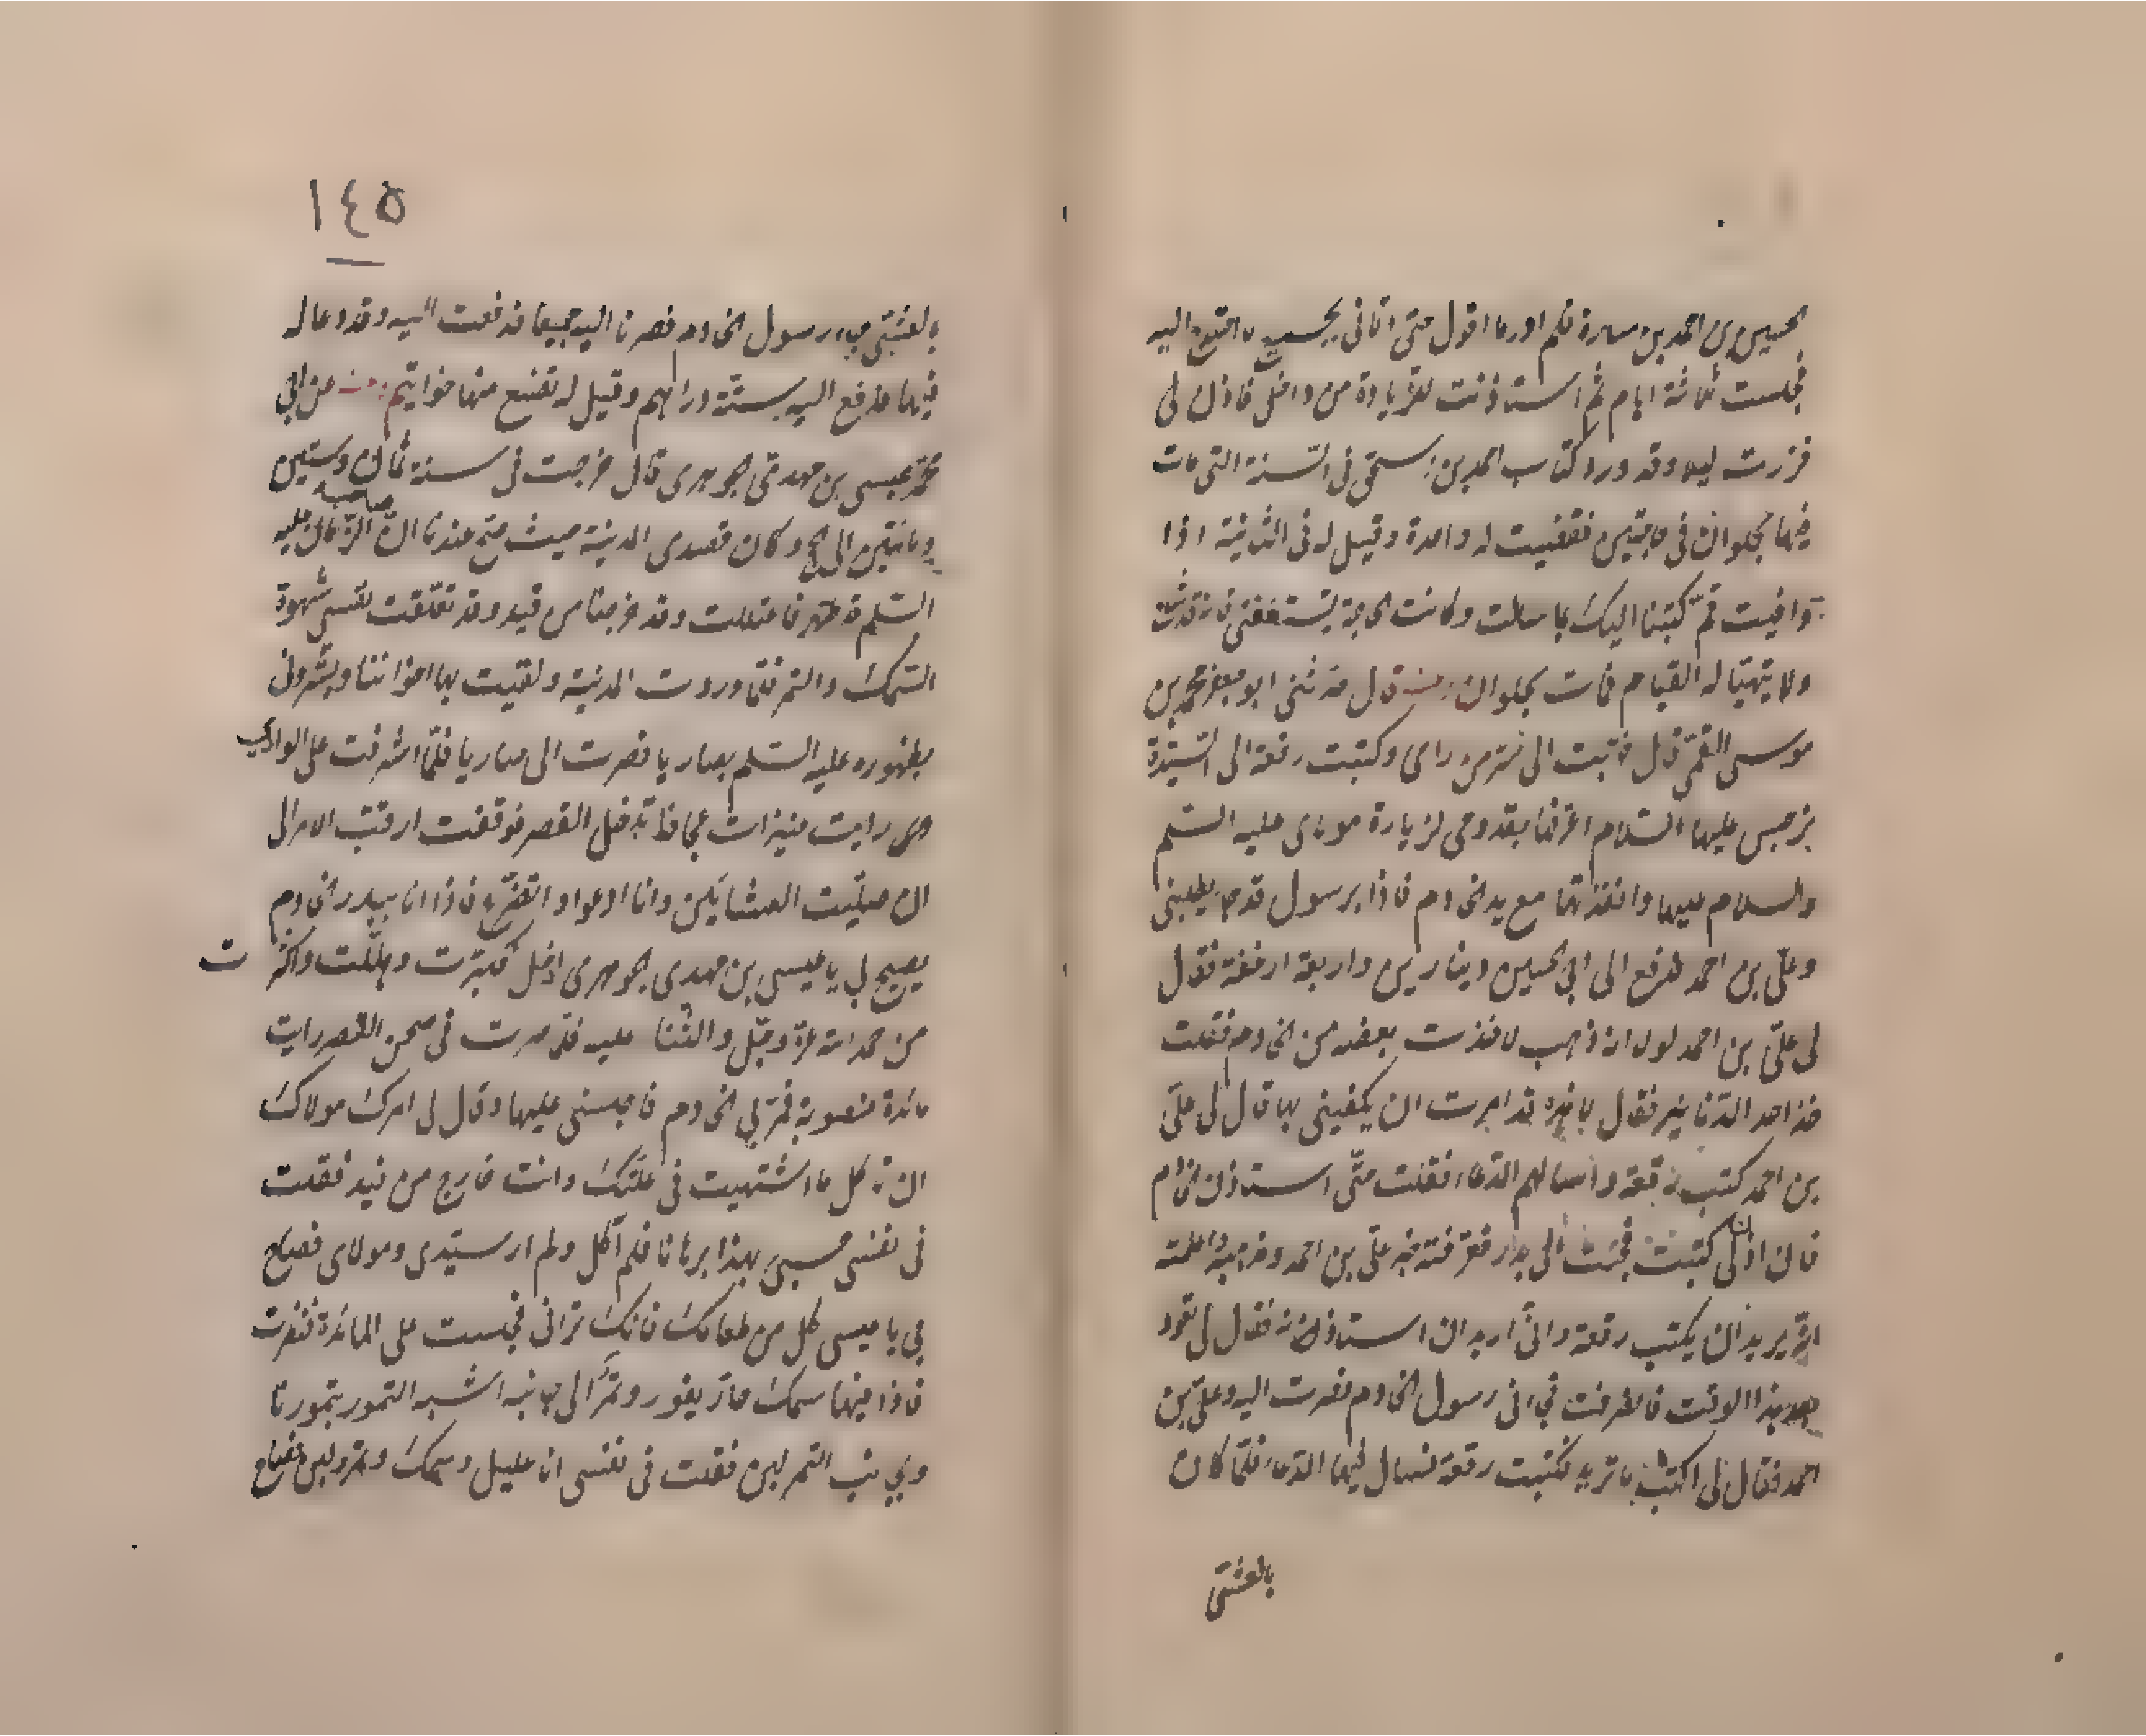 الحسين بن احمد بن سارة فلم ادر ما اقول حتى اتانى بحسبح ما احتج اليه
فجلست ثلاثة ايام ثم استاذنت للزيارة من داخل فاذن لى
فزرت ليلا وقد ورد كتاب احمد بن اسحق فى السنة التى مات
فيها بحلوان فى حاجتين فقضيت له واحدة وقيل له فى الثانية اذا
وافيت قم كتبنا اليك بما سالت وكانت الحاجة يستعفى
ولا يتهيّا له القيام فمات بحلوان ومنه قال حدثنى ابو جعفر محمد بن
موسى القمى قال كتبت الى سر من راى وكتبت رقعة الى السيّدة
نرجس عليها السّلام اعرفها بقدومى لزيارة مولاى عليه السلم
والسلام عليها وانفذتها مع يد الخادم فاذا برسول قد جاء يطلبنى
وعلى بن احمد فدفع الى ابى الحسين دينارين واربعة ارغفة فقال
لى علىّ بن احمد لولا انه ذهب لاخذت بعضه من الخادم فقلت
خذ احد الدّنانير فقال لا خيره قد امرت ان يكفينى بها قال لى علىّ
بن احمد كتب رقعة واسالهم الدّعاء فقلت حتّى استاذن الخادم
فان اذن لى كتبت فجئت الى بدار فعرفته خبر علىّ بن احمد ومذهبه واعلمته
انّه يريد ان يكتب رقعة وانّى اريد ان استاذن له فقال لى تعود
بعد هذا الوقت فانصرفت فجاءنى رسول الخادم فصرت اليه وعلىّ بن
احمد فقال لى اكتب ما تريد فكتبت رقعة نسال فيها الدّعاء فلمّا كان
بالعشىّ
١٤٥
بالعشىّ جاء رسول الخادم فصرنا اليه جميعا فدفعت اليه وقد دعا له
فيها فدفع اليه بستّة دراهم وقيل له تضع منها خواتيم ومنه عن ابى
محمّد عيسى بن مهدى الجوهرى قال خرجت فى سنة ثمان وستين
ومائتين الى الحج وكان قصدى المدينة حيث صحّ عندنا ان صاحب الزّمان عليه
السّلم قد ظهر فاعتللت وقد خرجنا من فيد وقد تعلّقت نفسى شهوة
السّمك والتمر فلمّا وردت المدينة ولقيت بها اخواننا وبشّرونى
بظهوره عليه السّلم بصاريا فصرت الى صاريا فلمّا اشرفت على الوادى
رايت عنيزات عجافا تدخل القصر فوقفت ارقب الامر الى
ان صلّيت العشائين وانا ادعو واتضرّع فاذا انا ببدر الخادم
يصيح لى يا عيسى بن مهدى الجوهرى ادخل فكبّرت وهلّلت واكثرت
من حمد الله عزّ وجلّ والثّنا عليه فلمّا صرت فى صحن القصر رايت
مائدة منصوبة فمرّ بى الخادم فاجلسنى عليها وقال لى امرك مولاك
ان تاكل ما اشتهيت فى علّتك وانت خارج من فيد فقلت
فى نفسى حسبى بهذا برهانا فلم آكل ولم ار سيّدى ومولاى فصاح
بى يا عيسى كل من طعامك فانك ترانى فجلست على المائدة فنظرت
فاذا فيها سمك حارّ يفور وتمرا الى جانبه اشبه التمور بتمورنا
وبجانب التمر لبن فقلت فى نفسى انا عليل وسمك وتمر ولبن فصاح